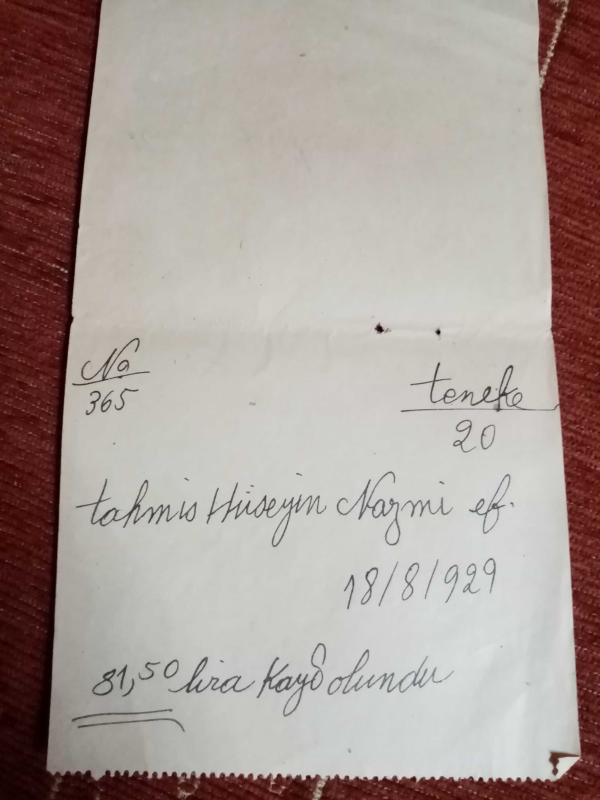 No
365
teneke
20
tahmis Hüseyin Nazmi ef.
18/8/929
81,50 lira Kayd olundu